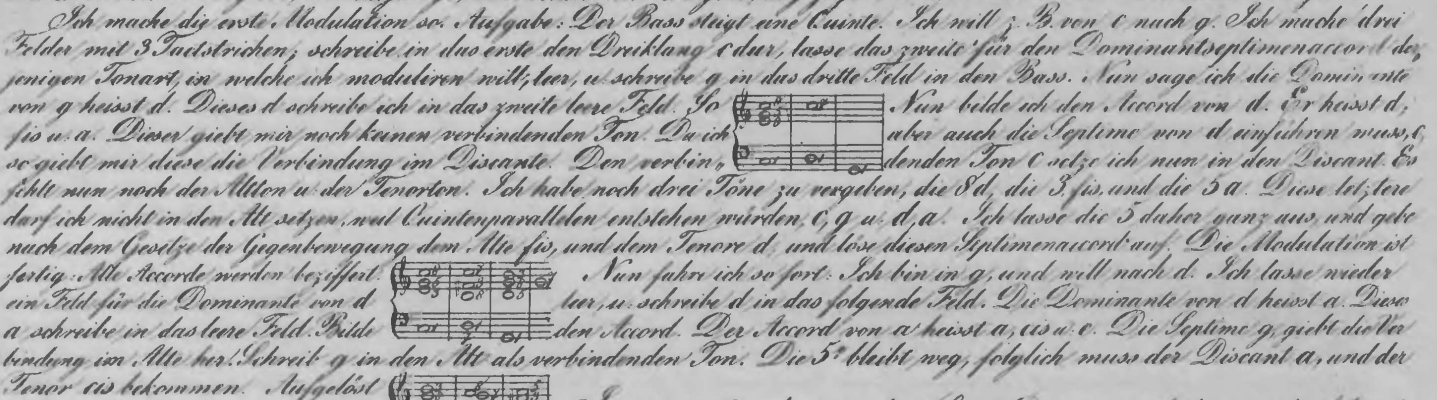 Ich mache die erste Modulation so. Aufgabe: Der Bass steigt eine Quinte. Ich will z. B. von c nach g. Ich mache drei
Felder mit 3 Tactstrichen; schreibe in das erste den Dreiklang c dur, lasse das zweite für den Dominantseptimenaccord der
jenigen Tonart, in welche ich moduliren will, leer, u. schreibe g in das dritte Feld in den Bass. Nun sage ich die Dominante
von g heisst d. Dieses d schreibe ich in das zweite leere Feld. So Nun bilde ich den Accord von d. Er heisst d,
fis u. a. Dieser giebt mir noch keinen verbindenden Ton. Da ich aber auch die Septime von d einführen muss, c,
so giebt mir diese die Verbindung im Discante. Den verbin, denden Ton c setze ich nun in den Discant. Es
fehlt nun noch der Altton u. der Tenorton. Ich habe noch drei Töne zu vergeben, die 8 d, die 3 fis, und die 5 a. Diese letztere
darf ich nicht in den Alt setzen, weil Quintenparallelen entstehen würden, c, g u. d, a. Ich lasse die 5 daher ganz aus, und gebe
nach dem Gesetze der Gegenbewegung dem Alte fis, und dem Tenore d, und löse diesen Septimenaccord auf. Die Modulation ist
fertig. Alle Accorde werden beziffert. Nun fahre ich so fort: Ich bin in g, und will nach d. Ich lasse wieder
ein Feld für die Dominante von d leer, u. schreibe d in das folgende Feld. Die Dominante von d heisst a. Dieses
a schreibe in das leere Feld. Bilde den Accord. Der Accord von a heisst a, cis u. e. Die Septime g, giebt die Ver
bindung im Alte her! Schreib g in den Alt als verbindenden Ton. Die 5 bleibt weg, folglich muss der Discant a, und der
Tenor cis bekommen. Aufgelöst